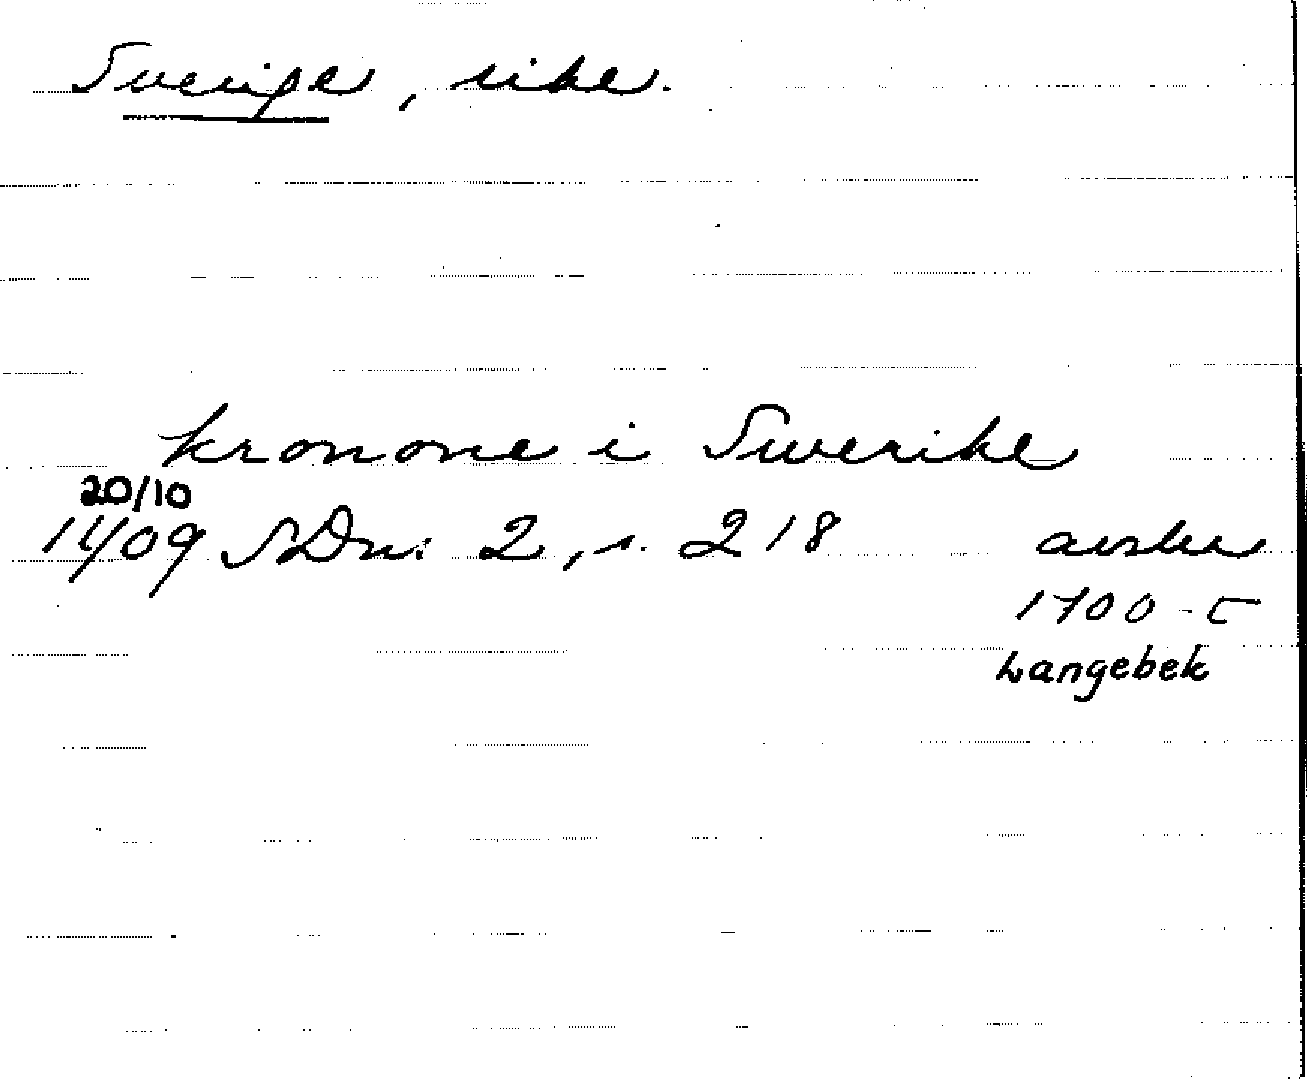 Sverige, rike.
kronone i Swerike
20/10
1409 SDns 2, s. 218 avskr
1700-t
Langebek